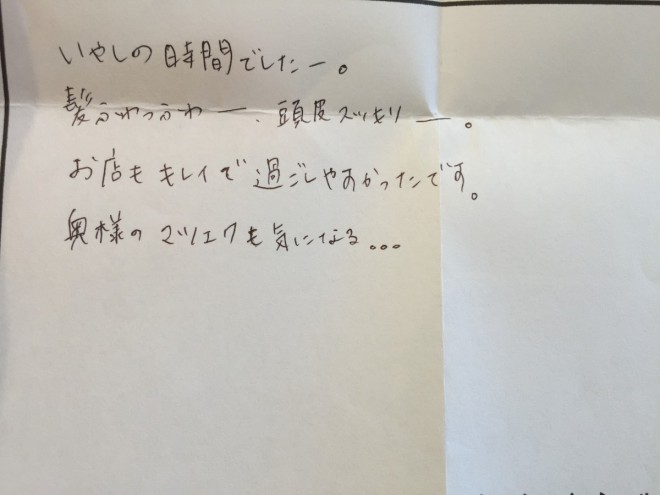 いやしの時間でしたー。
髪ふわっふわー、頭皮スッキリー。
お店もキレイで過ごしやすかったです。
奥様のマツエクも気になる...